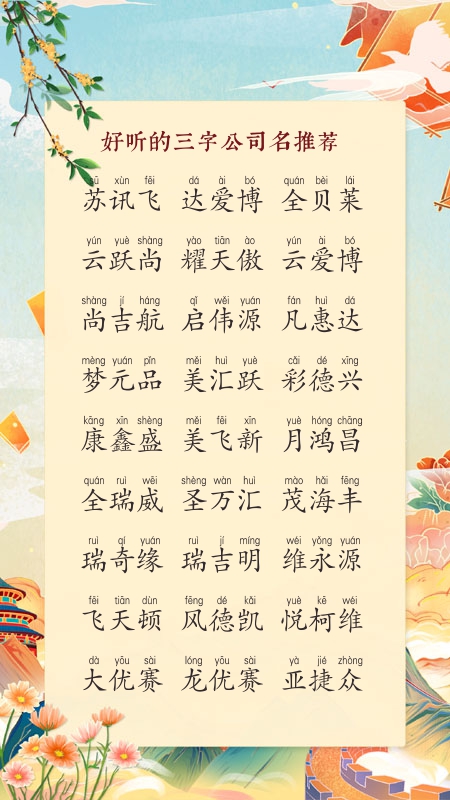 好听的三字公司名推荐
sū xùn fēi dá ài bó quán bèi lái
苏讯飞 达爱博 全贝莱
yún yuè shàng yào tiān ào yún ài bó
云跃尚 耀天傲 云爱博
shàng jí háng qǐ wěi yuán fán huì dá
尚吉航 启伟源 凡惠达
mèng yuán pǐn měi huì yuè cǎi dé xīng
梦元品 美汇跃 彩德兴
kāng xīn shèng měi fēi xīn yuè hóng chāng
康鑫盛 美飞新 月鸿昌
quán ruì wēi shèng wàn huì mào hǎi fēng
全瑞威 圣万汇 茂海丰
ruì qí yuán ruì jí míng wéi yǒng yuán
瑞奇缘 瑞吉明 维永源
fēi tiān dùn fēng dé kǎi yuè kē wéi
飞天顿 风德凯 悦柯维
dà yōu sài lóng yōu sài yà jié zhòng
大优赛 龙优赛 亚捷众